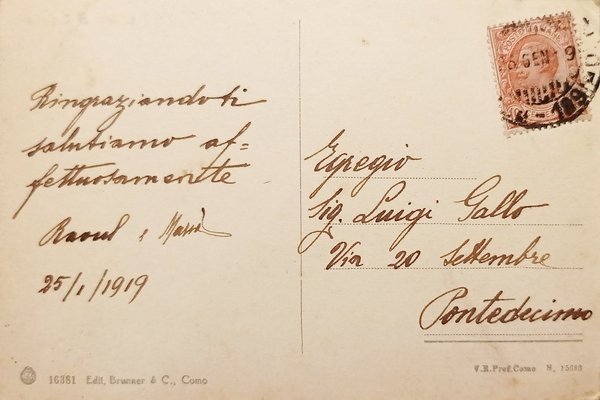 Ringraziandoti
salutiamo af=
fettuosamente
Raoul e
25/1/1919
Egregio
Sig. Luigi Gallo
Via 20 Settembre
Pontedecimo
16381 Edit. Brunner & C., Como
V.R.Pref.Como N.
GEN